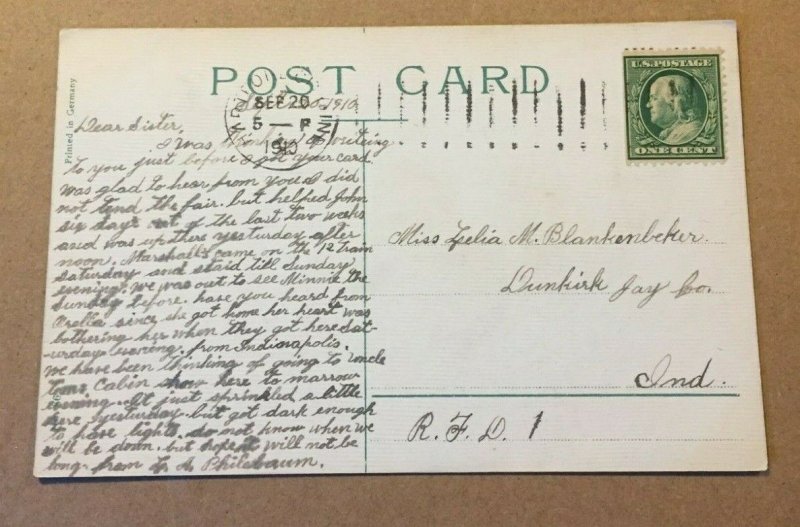 POST CARD
Printed in Germany
SEP 20
5 - P
1910
IND
U.S. POSTAGE
ONE CENT
Dear Sister,
I was thinking of writing
to you just before I got your card.
was glad to hear from you I did
not tend the fair. but helped John
six days out of the last two weeks
and was up there yesterday after
noon. Marshalls came on the 12 train
Saturday and staid till Sunday
evening. we was out to see Minnie the
Sunday before. have you heard from
Orella since she got home her heart was
bothering her when they got here Sat-
urday evening. from Indianapolis.
we have been thinking of going to Uncle
Toms Cabin show here to marrow
evening. It just sprinkled a little
here yesterday but got dark enough
to have lights. do not know when we
will be down. but hope it will not be
long. from Philebaum.
Miss Zelia M. Blankenbeker.
Dunkirk Jay Co.
Ind.
R. F. D. 1